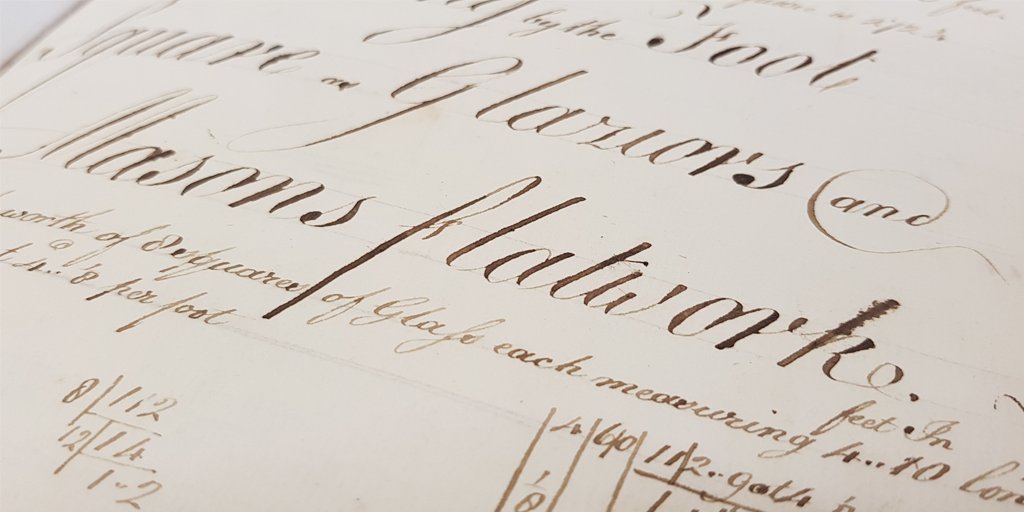 by the Foot
Square as Glaziors and
Masons flatwork.
worth of 8 squares of Glass each measuring 4..10 lon
4..8 per foot
feet In
8/112
12/14
1..2
4/60/112..
1
8